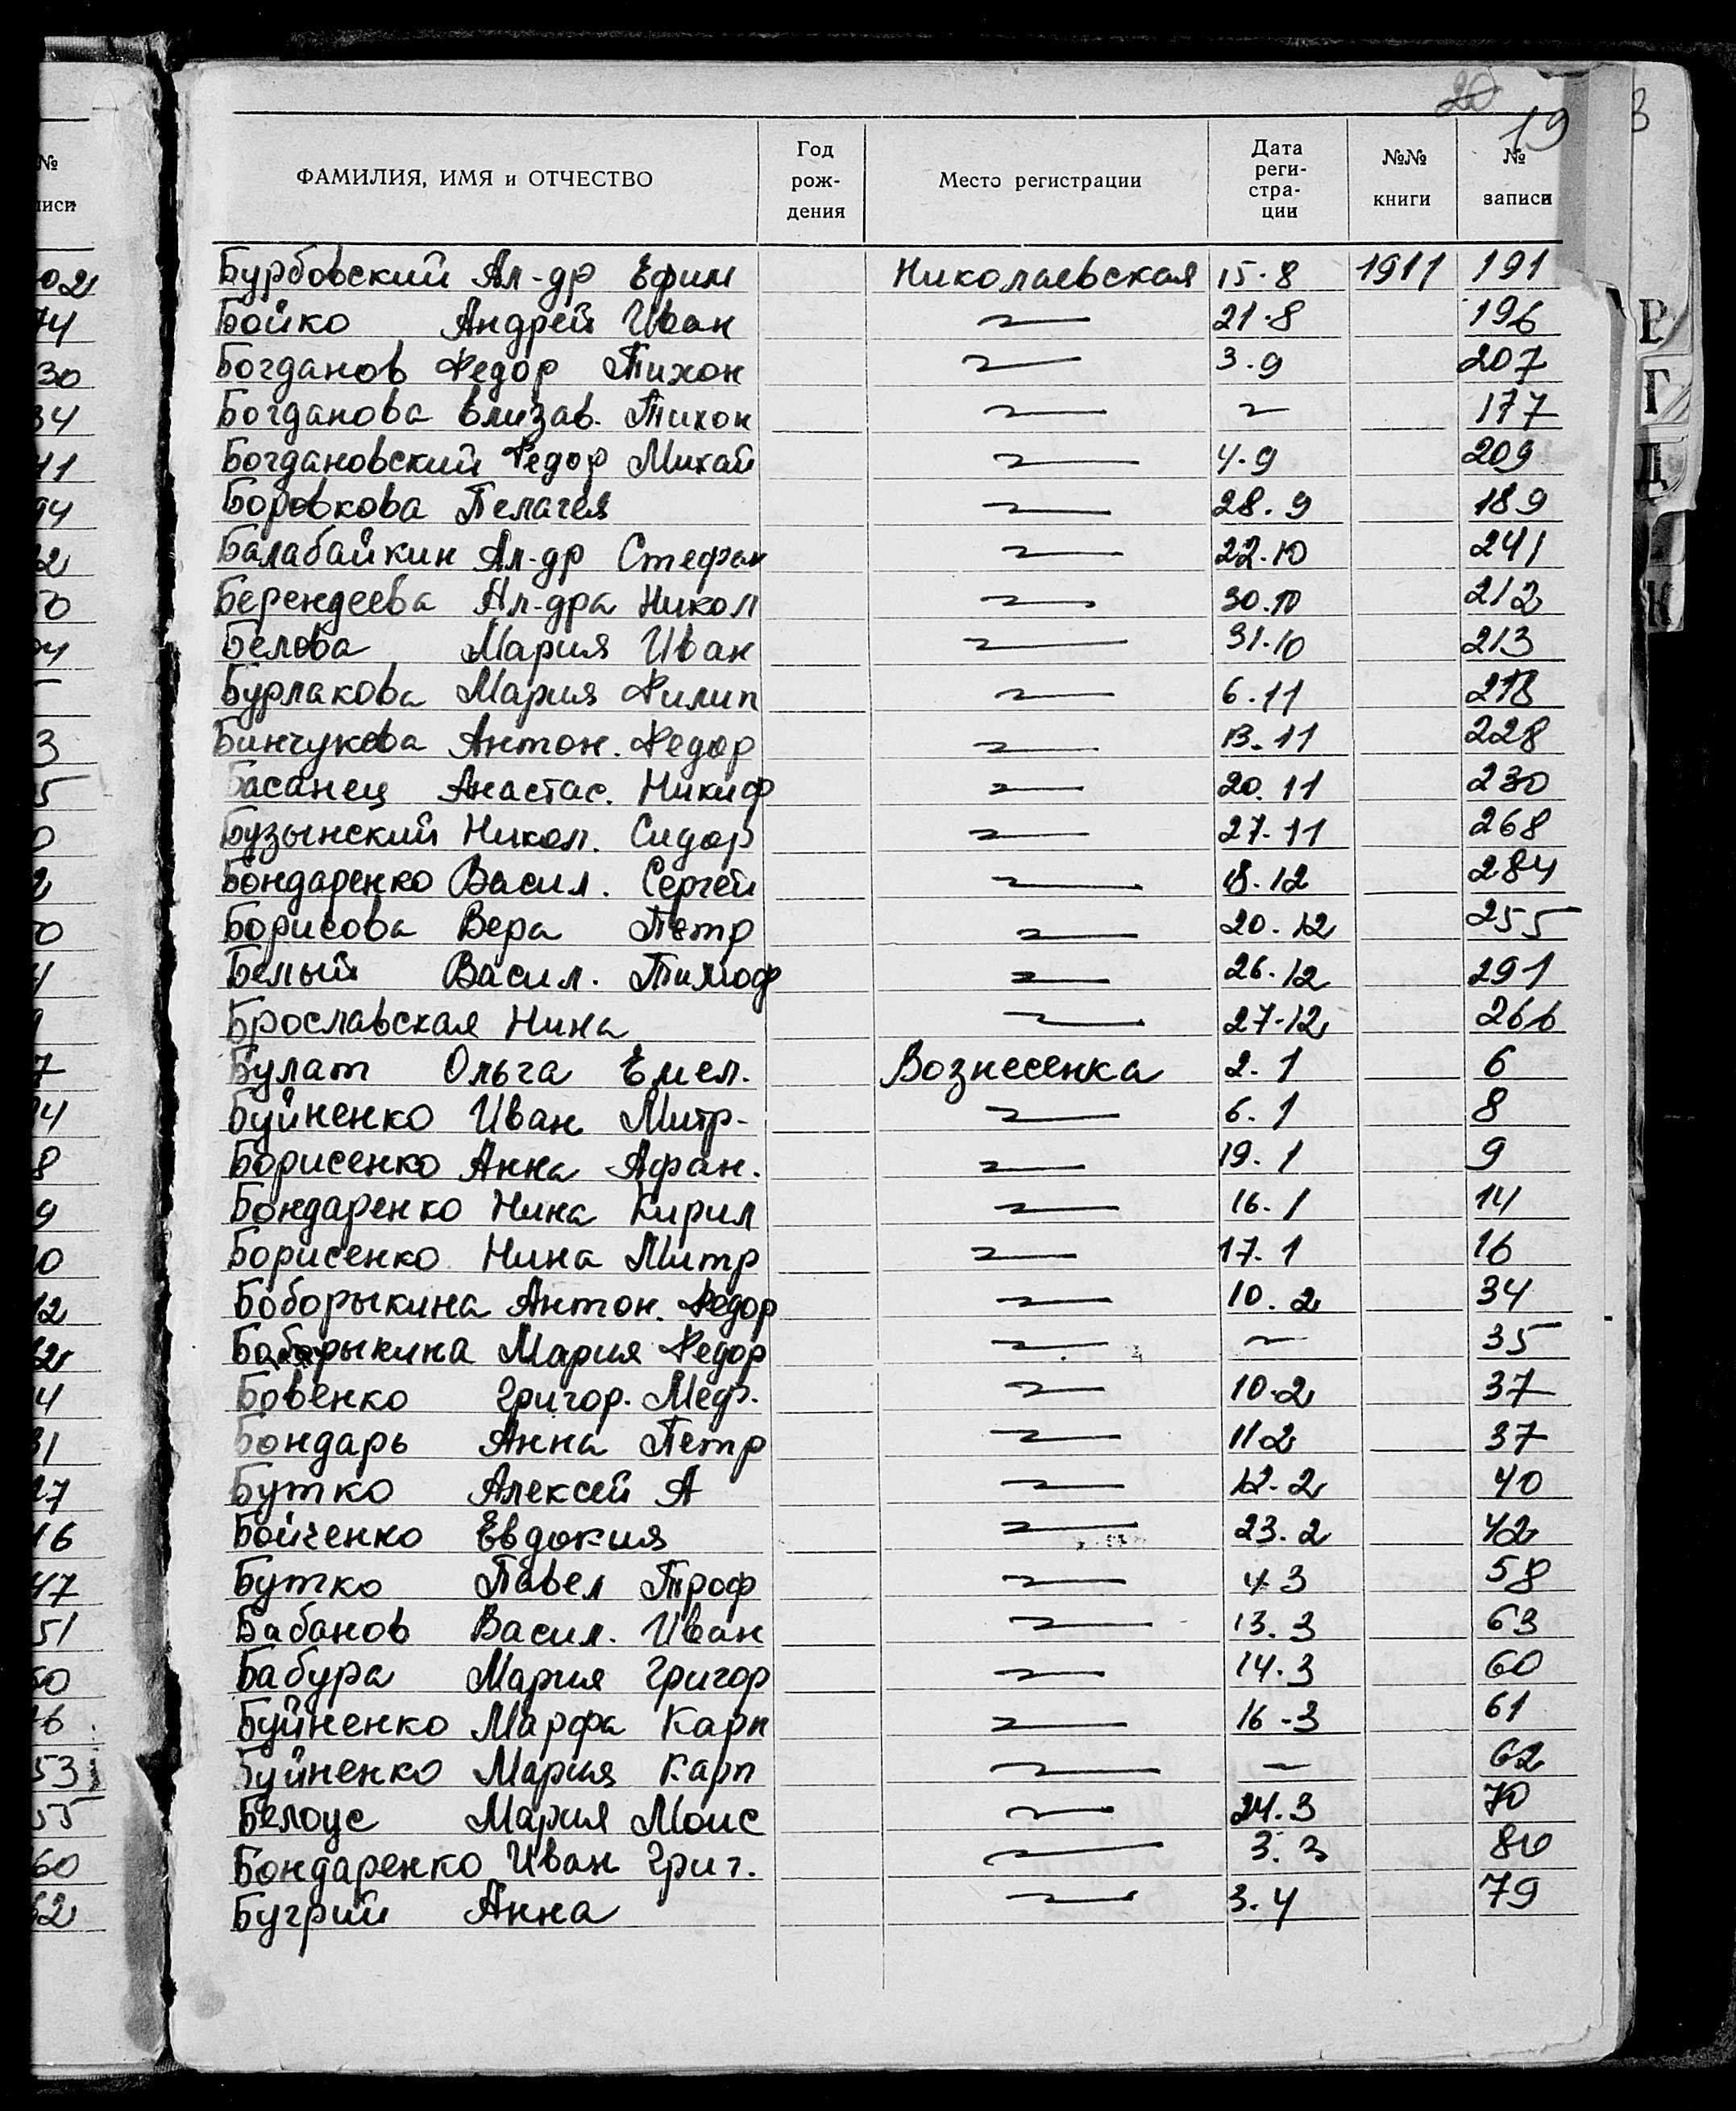 20
19
ФАМИЛИЯ, ИМЯ и ОТЧЕСТВО Год рождения Место регистрации Дата регистрации №№ книги № записи
Бурбовский Ал-др Ефим Николаевская 15.8 1911 191
Бойко Андрей Иван — 21.8 196
Богданов Федор Тихон — 3.9 207
Богданова Елизав. Тихон — — 177
Богдановский Федор Михай — 4.9 209
Боровкова Пелагея — 28.9 189
Балабайкин Ал-др Стефан — 22.10 241
Берендеева Ал-дра Никол — 30.10 212
Белова Мария Иван — 31.10 213
Бурлакова Мария Филип — 6.11 218
Бинчукова Антон. Федор — 13.11 228
Басанец Анастас. Никиф — 20.11 230
Бузынский Никол. Сидор — 27.11 268
Бондаренко Васил. Сергей — 18.12 284
Борисова Вера Петр — 20.12 255
Белый Васил. Тимоф — 26.12 291
Брославская Нина — 27.12 266
Булат Ольга Емел. Вознесенка 2.1 6
Буйненко Иван Митр. — 6.1 8
Борисенко Анна Афан. — 19.1 9
Бондаренко Нина Кирил — 16.1 14
Борисенко Нина Митр — 17.1 16
Боборыкина Антон. Федор — 10.2 34
Боборыкина Мария Федор — — 35
Бовенко Григор. Меф. — 10.2 37
Бондарь Анна Петр — 11 2 37
Бутко Алексей А — 12.2 40
Бойченко Евдокия — 23.2 42
Бутко Павел Троф — 4 3 58
Бабанов Васил. Иван — 13.3 63
Бабура Мария Григор — 14.3 60
Буйненко Марфа Карп — 16-3 61
Буйненко Мария Карп — — 62
Белоус Мария Моис — 24.3 70
Бондаренко Иван Григ. — 3.3 80
Бугрий Анна — 3.4 79